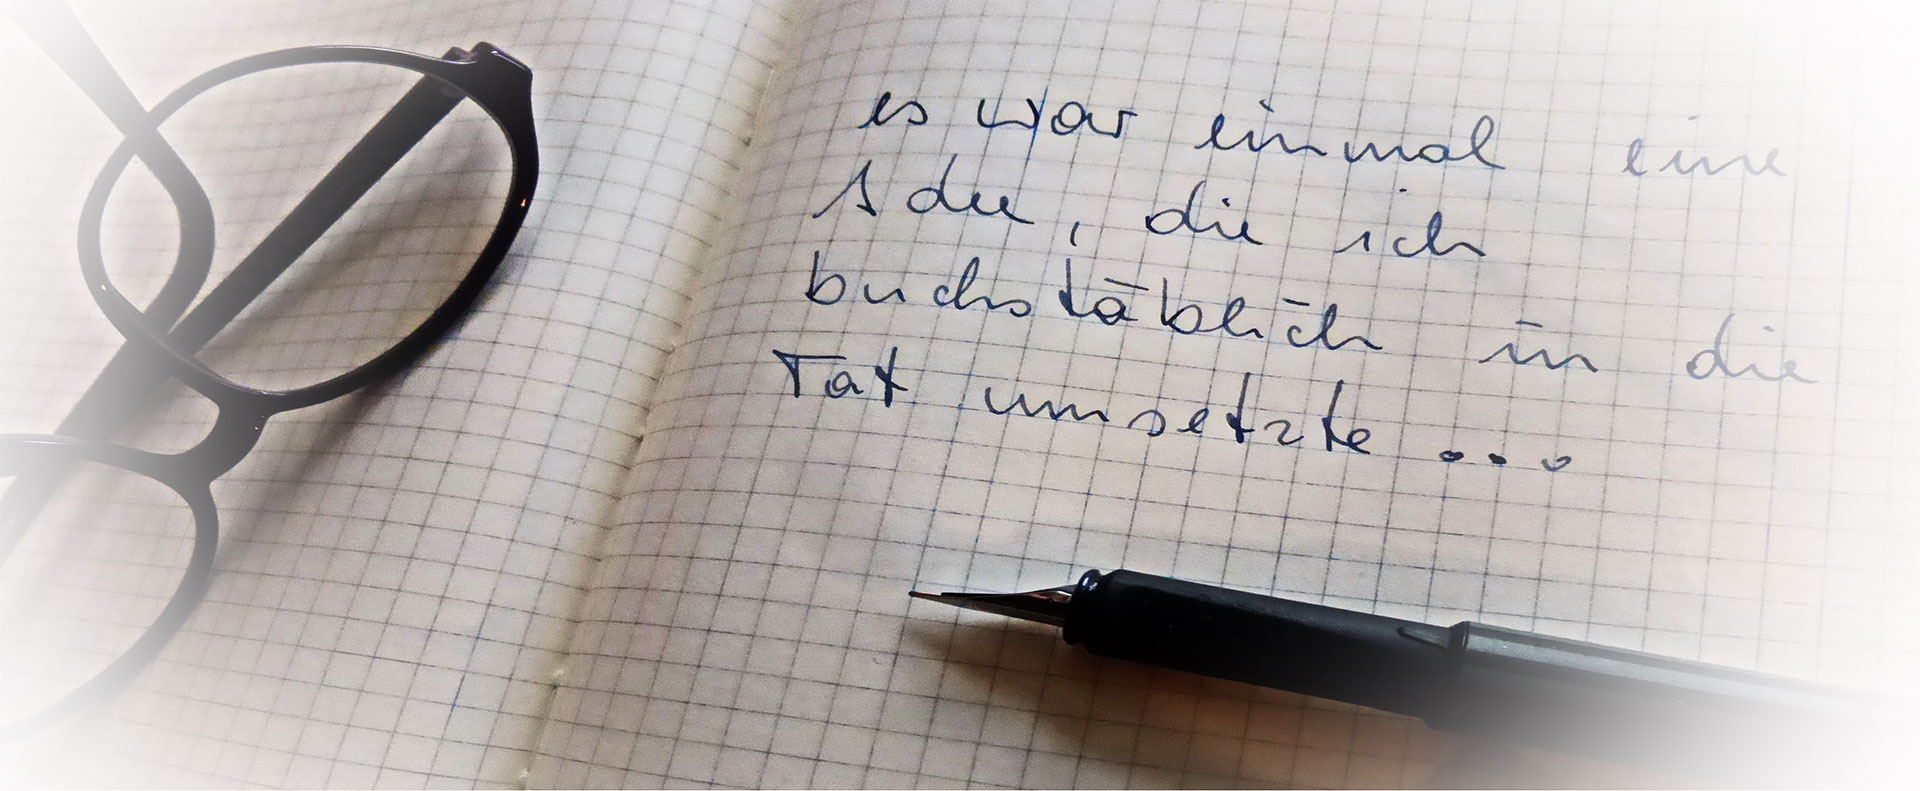 es war einmal eine
Idee, die ich
buchstäblich in die
Tat umsetzte ...